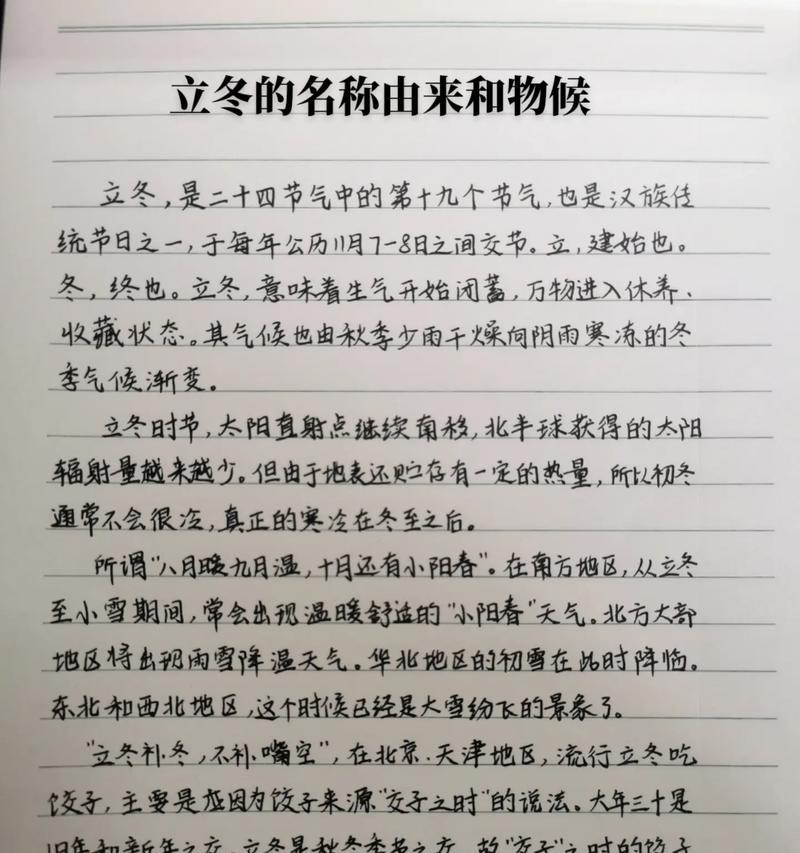 立冬的名称由来和物候
立冬，是二十四节气中的第十九个节气，也是汉族传
统节日之一，于每年公历11月7-8日之间交节。立，建始也。
冬，终也。立冬，意味着生气开始闭蓄，万物进入休养、
收藏状态。其气候也由秋季少雨干燥向阴雨寒冻的冬
季气候渐变。
立冬时节，太阳直射点继续南移，北半球获得的太阳
辐射量越来越少。但由于地表还贮存有一定的热量，所以初冬
通常不会很冷，真正的寒冷在冬至之后。
所谓“八月暖九月温，十月还有小阳春”。在南方地区，从立冬
至小雪期间，常会出现温暖舒适的“小阳春”天气。北方大部
地区将出现雨雪降温天气。华北地区的初雪在此时降临。
东北和西北地区，这个时候已经是大雪纷飞的景象了。
“立冬补冬，不补嘴空”，在北京、天津地区，流行立冬吃
饺子，主要是因为饺子来源“交子之时”的说法。大年三十是
旧年和新年之交，立冬是秋冬季节之交，故“交子”之时的饺子